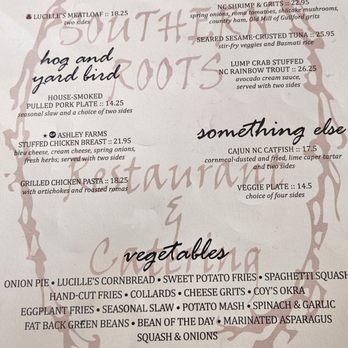 LUCILLE'S MEATLOAF :: 18.25
two sides
hog and
yard bird
HOUSE-SMOKED
PULLED PORK PLATE :: 14.25
seasonal slaw and a choice of two sides
ASHLEY FARMS
STUFFED CHICKEN BREAST :: 21.95
bleu cheese, cream cheese, spring onions,
fresh herbs; served with two sides
GRILLED CHICKEN PASTA :: 18.25
with artichokes and roasted romas
NC SHRIMP & GRITS :: 22.95
spring onions, roma tomatoes, shiitake mushrooms,
country ham, Old Mill of Guilford grits
SEARED SESAME-CRUSTED TUNA :: 25.5
stir-fry veggies and Basmati rice
LUMP CRAB STUFFED
NC RAINBOW TROUT :: 26.25
avocado cream sauce,
served with two sides
something else
CAJUN NC CATFISH :: 17.5
cornmeal-dusted and fried, lime caper tartar
and two sides
VEGGIE PLATE :: 14.5
choice of four sides
SOUTHE
ROOTS
Restauran
&
Catering
vegetables
ONION PIE • LUCILLE'S CORNBREAD • SWEET POTATO FRIES • SPAGHETTI SQUASH
HAND-CUT FRIES • COLLARDS • CHEESE GRITS • COY'S OKRA
EGGPLANT FRIES • SEASONAL SLAW • POTATO MASH • SPINACH & GARLIC
FAT BACK GREEN BEANS • BEAN OF THE DAY • MARINATED ASPARAGUS
SQUASH & ONIONS